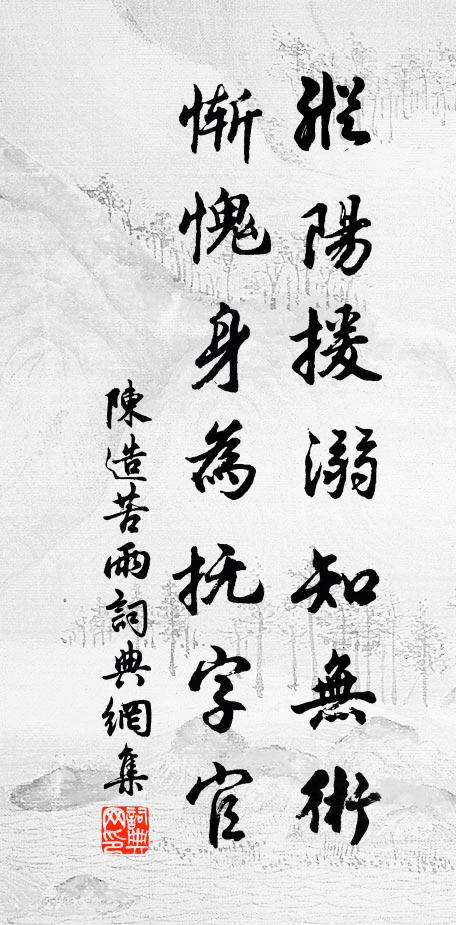 縱陽援溺知無術
慚愧身為抚字官
陳造苦雨詞典網集
詞典網印